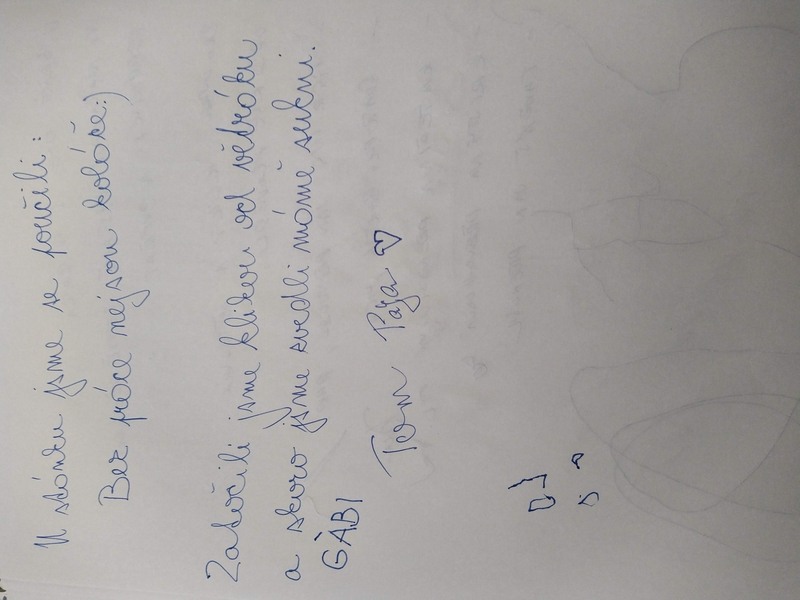 U stánku jsme se poučili:
Bez práce nejsou koláče:)
Zatočili jsme klikou od větráku
a skoro jsme svedli mámě sukni.
GÁBI
Tom Pája ♡